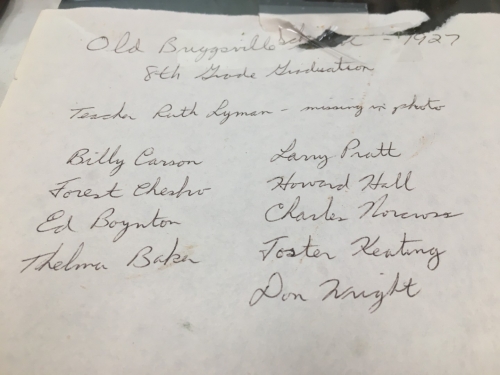 Old Briggsville School - 1927
8th Grade Graduation
Teacher Ruth Lyman - missing in photo
Billy Carson
Forest Cheshro
Ed Boynton
Thelma Baker
Larry Pratt
Howard Hall
Charles Norcross
Foster Keating
Don Wright